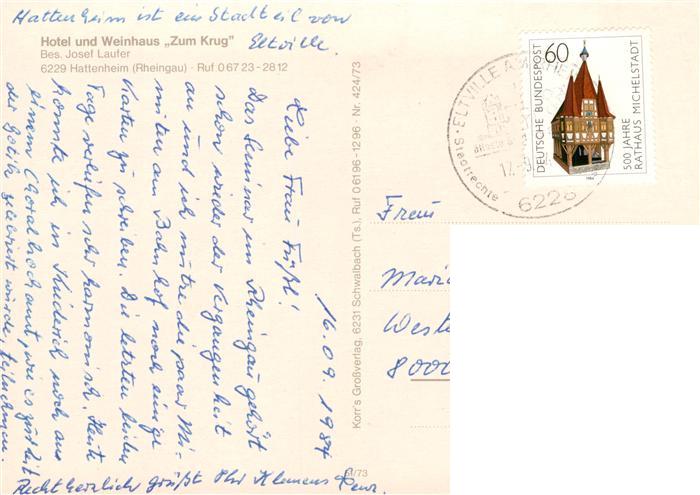 Hattenheim ist ein Stadtteil von
Eltville.
Hotel und Weinhaus „Zum Krug"
Bes. Josef Laufer
6229 Hattenheim (Rheingau) · Ruf 0 67 23 - 28 12
16.09.1984
Liebe Frau
Das Seminar im Rheingau gehört
schon wieder der Vergangenheit
an und ich nutze die paar Mi-
nuten am Bahnhof noch einige
Karten zu schreiben. Die letzten beiden
Tage verliefen sehr harmonisch. Heute
konnte ich in Kiedrich noch an
einem Choralhochamt, wie es zur Zeit
der Gotik zelebriert wurde, teilnehmen.
Recht herzlich grüßt Ihr Klemens
Korr's Großverlag, 6231 Schwalbach (Ts.), Ruf 0 61 96 - 12 96 · Nr. 424/73
/73
60
DEUTSCHE BUNDESPOST
500 JAHRE
RATHAUS MICHELSTADT
1984
ELTVILLE AM
Stadtrechte
6228
Frau
Maria
Weste
8000